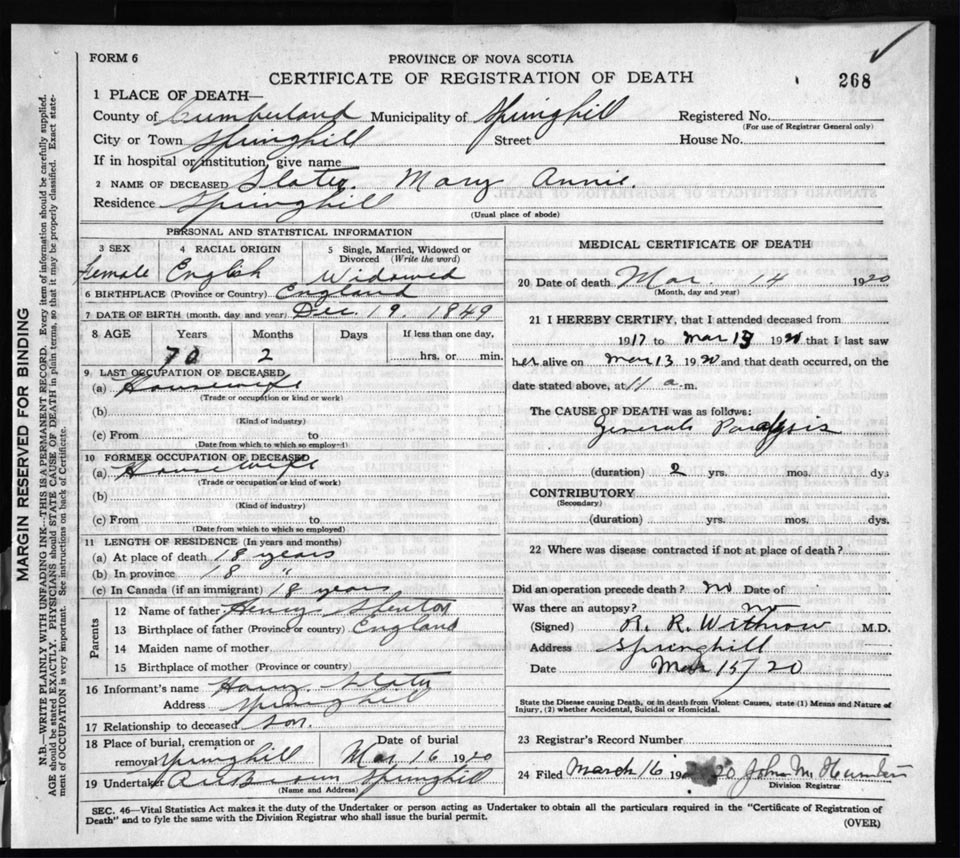 FORM 6
PROVINCE OF NOVA SCOTIA
CERTIFICATE OF REGISTRATION OF DEATH
268
1 PLACE OF DEATH—
County of Cumberland Municipality of Springhill Registered No.
(For use of Registrar General only)
City or Town Springhill Street House No.
If in hospital or institution, give name
2 NAME OF DECEASED Slater. Mary Annie.
Residence Springhill
(Usual place of abode)
PERSONAL AND STATISTICAL INFORMATION
3 SEX 4 RACIAL ORIGIN 5 Single, Married, Widowed or Divorced (Write the word)
Female English Widowed
6 BIRTHPLACE (Province or Country) England
7 DATE OF BIRTH (month, day and year) Dec. 19. 1849
8 AGE Years Months Days If less than one day,
70 2 hrs. or min.
9 LAST OCCUPATION OF DECEASED
(a) Housewife
(Trade or occupation or kind or work)
(b)
(Kind of industry)
(c) From to
(Date from which to which so employed)
10 FORMER OCCUPATION OF DECEASED
(a) Housewife
(Trade or occupation or kind of work)
(b)
(Kind of industry)
(c) From to
(Date from which to which so employed)
11 LENGTH OF RESIDENCE (In years and months)
(a) At place of death 18 years
(b) In province 18 "
(c) In Canada (if an immigrant) 18 years
Parents
12 Name of father Henry
13 Birthplace of father (Province or country) England
14 Maiden name of mother
15 Birthplace of mother (Province or country)
16 Informant's name Harry Slater
Address Springhill
17 Relationship to deceased Son.
18 Place of burial, cremation or removal Springhill Date of burial Mar 16 1920
19 Undertaker Brown Springhill
(Name and Address)
MEDICAL CERTIFICATE OF DEATH
20 Date of death Mar. 14 1920
(Month, day and year)
21 I HEREBY CERTIFY, that I attended deceased from
1917 to Mar 13 1920 that I last saw
her alive on Mar 13 1920 and that death occurred, on the
date stated above, at 11 a.m.
The CAUSE OF DEATH was as follows:
General Paralysis
(duration) 2 yrs. mos. dys
CONTRIBUTORY
(Secondary)
(duration) yrs. mos. dys.
22 Where was disease contracted if not at place of death?
Did an operation precede death? No Date of
Was there an autopsy? no
(Signed) R. R. Withrow M.D.
Address Springhill
Date Mar 15/20
State the Disease causing Death, or in death from Violent Causes, state (1) Means and Nature of
Injury, (2) whether Accidental, Suicidal or Homicidal.
23 Registrar's Record Number
24 Filed March 16 20 John M
Division Registrar
SEC. 46—Vital Statistics Act makes it the duty of the Undertaker or person acting as Undertaker to obtain all the particulars required in the "Certificate of Registration of
Death" and to fyle the same with the Division Registrar who shall issue the burial permit.
(OVER)
MARGIN RESERVED FOR BINDING
N.B.—WRITE PLAINLY WITH UNFADING INK—THIS IS A PERMANENT RECORD. Every item of information should be carefully supplied.
AGE should be stated EXACTLY. PHYSICIANS should STATE CAUSE OF DEATH in plain terms, so that it may be properly classified. Exact state-
ment of OCCUPATION is very important. See instructions on back of Certificate.